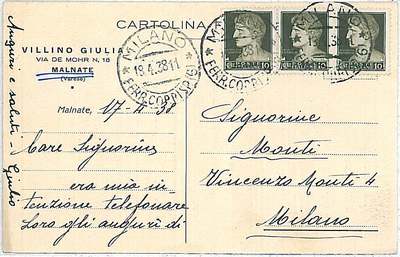 CARTOLINA
VILLINO GIULIA
VIA DE MOHR N. 16
MALNATE
(Varese)
MILANO
18.4.38 11
FERR. CORR. P.
10
10
10
Malnate, 17-4-38
Care Signorine
era mia in
tenzione telefonare
Loro gli auguri di
Auguri e saluti - Giulio
Signorine
Monti
Vincenzo Monti 4
Milano